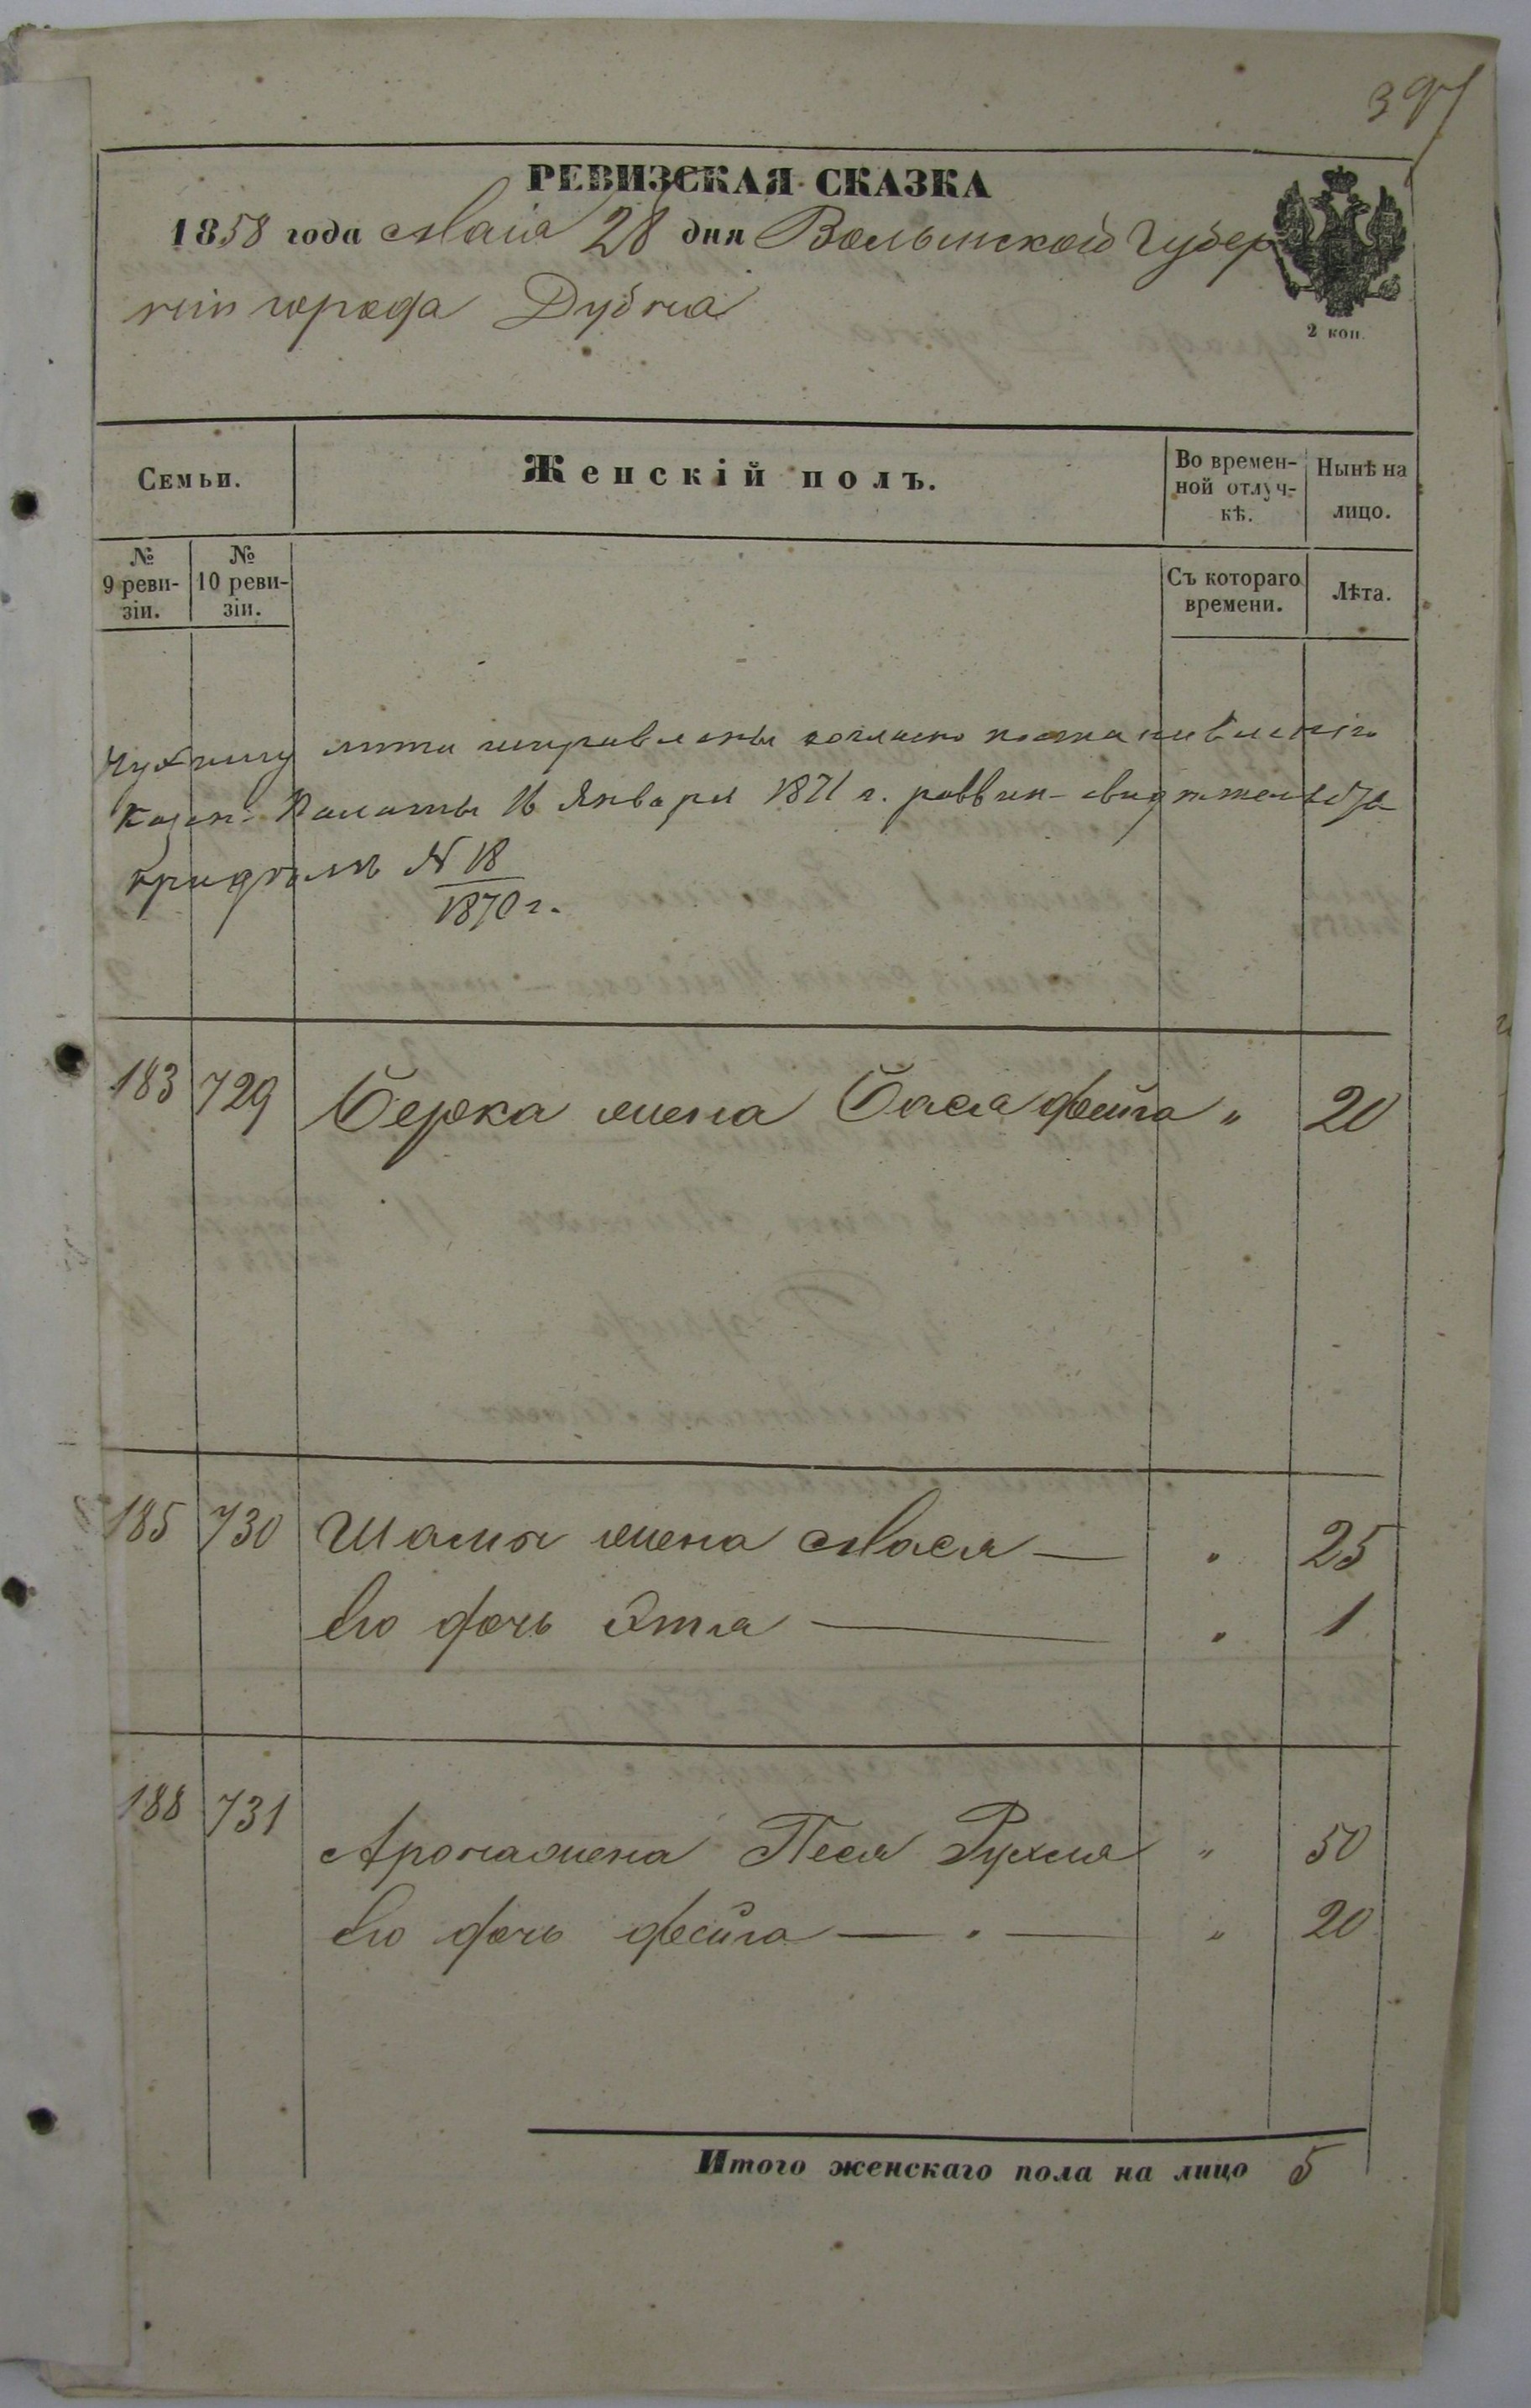 397
РЕВИЗСКАЯ СКАЗКА
1858 года Маія 28 дня Волынской Губер
ніи города Дубна
2 коп.
Семьи.
Женскій полъ.
Во времен-
ной отлуч-
кѣ.
Нынѣ на
лицо.
№
9 реви-
зіи.
№
10 реви-
зіи.
Съ котораго
времени.
Лѣта.
лѣта исправлены согласно постановленію
Казен. Палаты 16 Января 1871 г. раввин-
N 18
1870 г.
183 729 Берка жена Бася Фейга " 20
185 730 Шамы жена Мася — " 25
Его дочь Этля — " 1
188 731 Арона жена Песя Рухля " 50
Его дочь Фейга — " — " 20
Итого женскаго пола на лицо 5